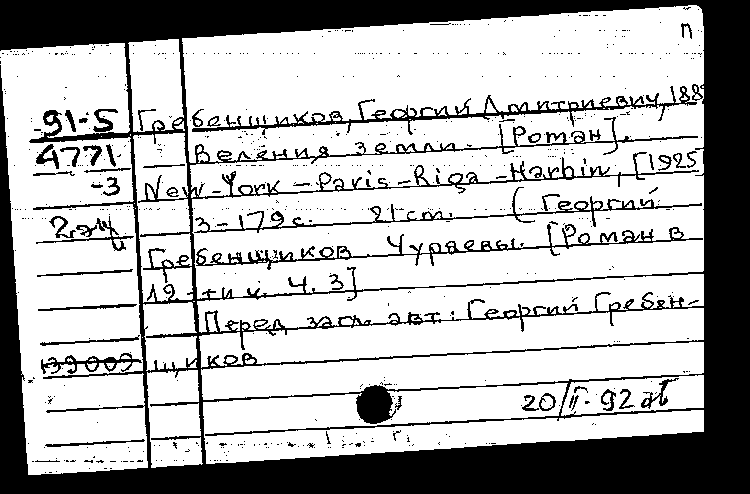 п
91-5 Гребенщиков, Георгий Дмитриевич, 188
4771 Веления земли. [Роман].
-3 New-York – Paris – Riga – Harbin, [1925]
2 экз 3-179 с. 21 cm. (Георгий
Гребенщиков. Чураевы. [Роман в
12-ти ч. Ч. 3]
Перед загл. авт.: Георгий Гребен-
139009 щиков
20/II-92